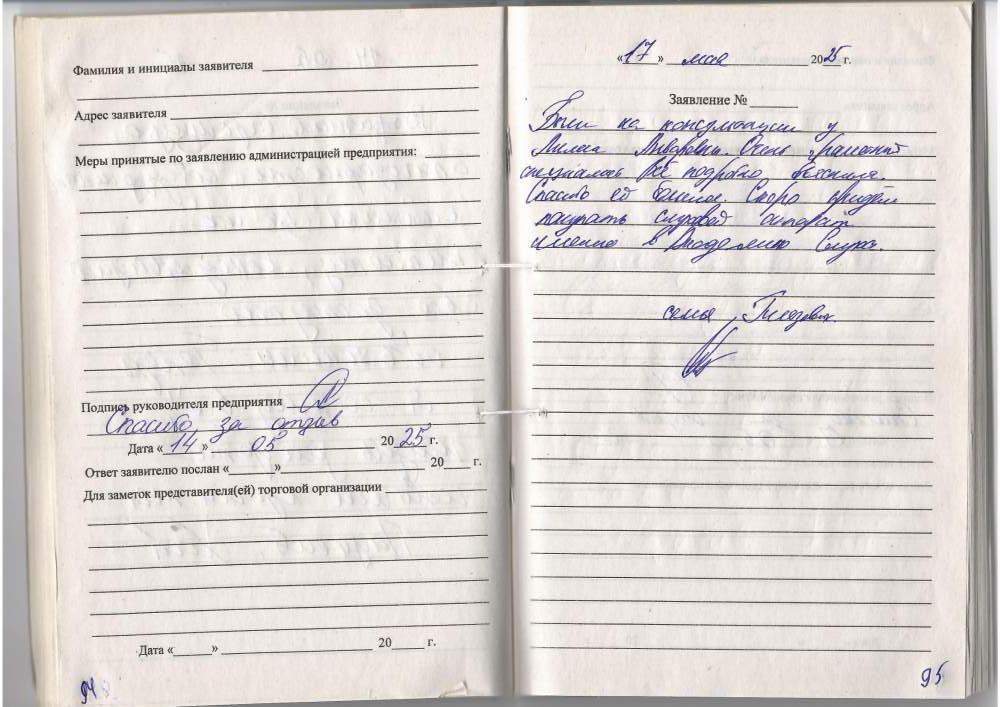 Фамилия и инициалы заявителя
Адрес заявителя
Меры принятые по заявлению администрацией предприятия:
Подпись руководителя предприятия
Спасибо за отзыв
Дата «14» 05 2025 г.
Ответ заявителю послан « » 20 г.
Для заметок представителя(ей) торговой организации
Дата « » 20 г.
94
«17» мая 2025 г.
Заявление №
Были на консультации у
Очень грамотный
специалист. Всё подробно
Спасибо ей большое. Скоро придём
покупать слуховой аппарат
именно в Академию Слуха.
семья
95